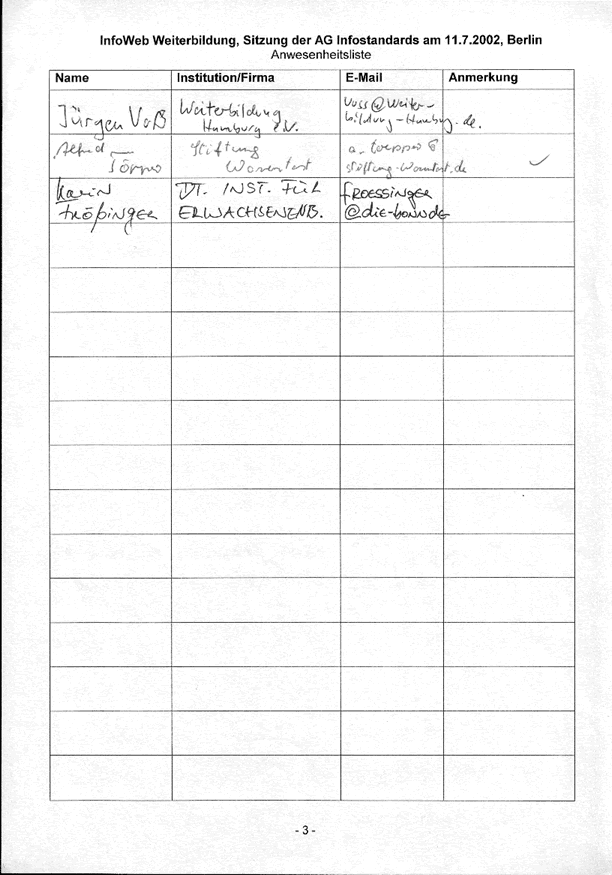 InfoWeb Weiterbildung, Sitzung der AG Infostandards am 11.7.2002, Berlin
Anwesenheitsliste
Name Institution/Firma E-Mail Anmerkung
Jürgen Voß Weiterbildung Hamburg e.V. voss@weiter-
bildung-Hamburg.de.
Alfred Töpper Stiftung Warentest a.toepper@
stiftung-warentest.de
Karin DT. INST. FÜR FROESSINGER
Frößinger ERWACHSENENB. @die-bonn.de
- 3 -